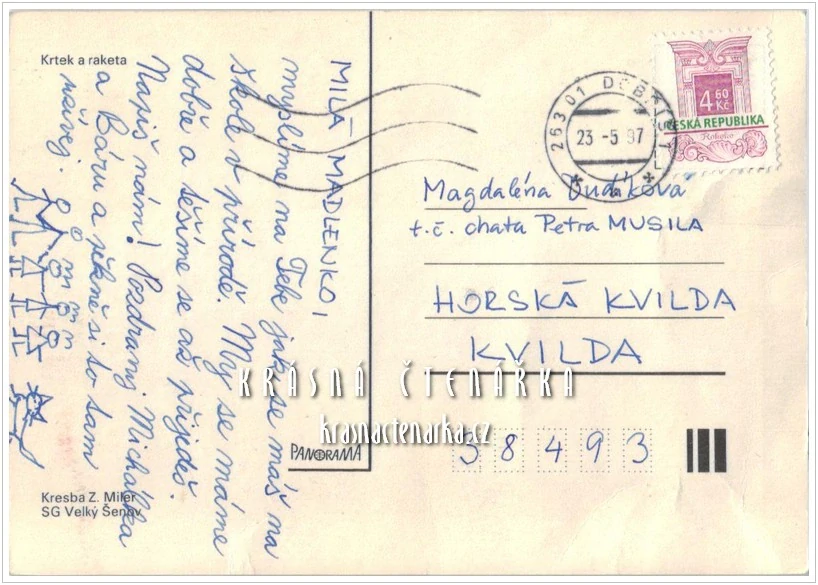 Krtek a raketa
MILÁ MADLENKO,
myslíme na Tebe jak se máš na
škole v přírodě. My se máme
dobře a těšíme se až přijedeš.
Napiš nám! Pozdravuj Michalka
a Báru a pěkně si to tam
užívej.
Kresba Z. Miler
SG Velký Šenov
PANORAMA
263 01 DOBŘÍŠ 1
23 -5 97
a
4 60
Kč
ČESKÁ REPUBLIKA
Rokoko
Magdaléna Dudíková
t.č. chata Petra MUSILA
HORSKÁ KVILDA
KVILDA
38493
KRÁSNÁ ČTENÁŘKA
krasnactenarka.cz